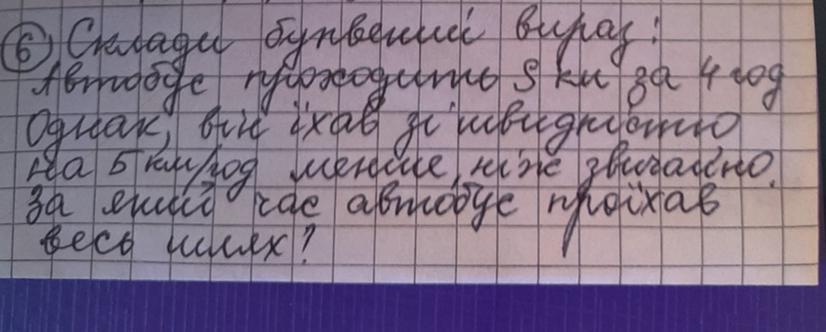 6 Склади буквений вираз:
Автобус проходить S км за 4 год
Однак, він їхав зі швидкістю
на 5 км/год менше, ніж звичайно.
За який час автобус проїхав
весь шлях?